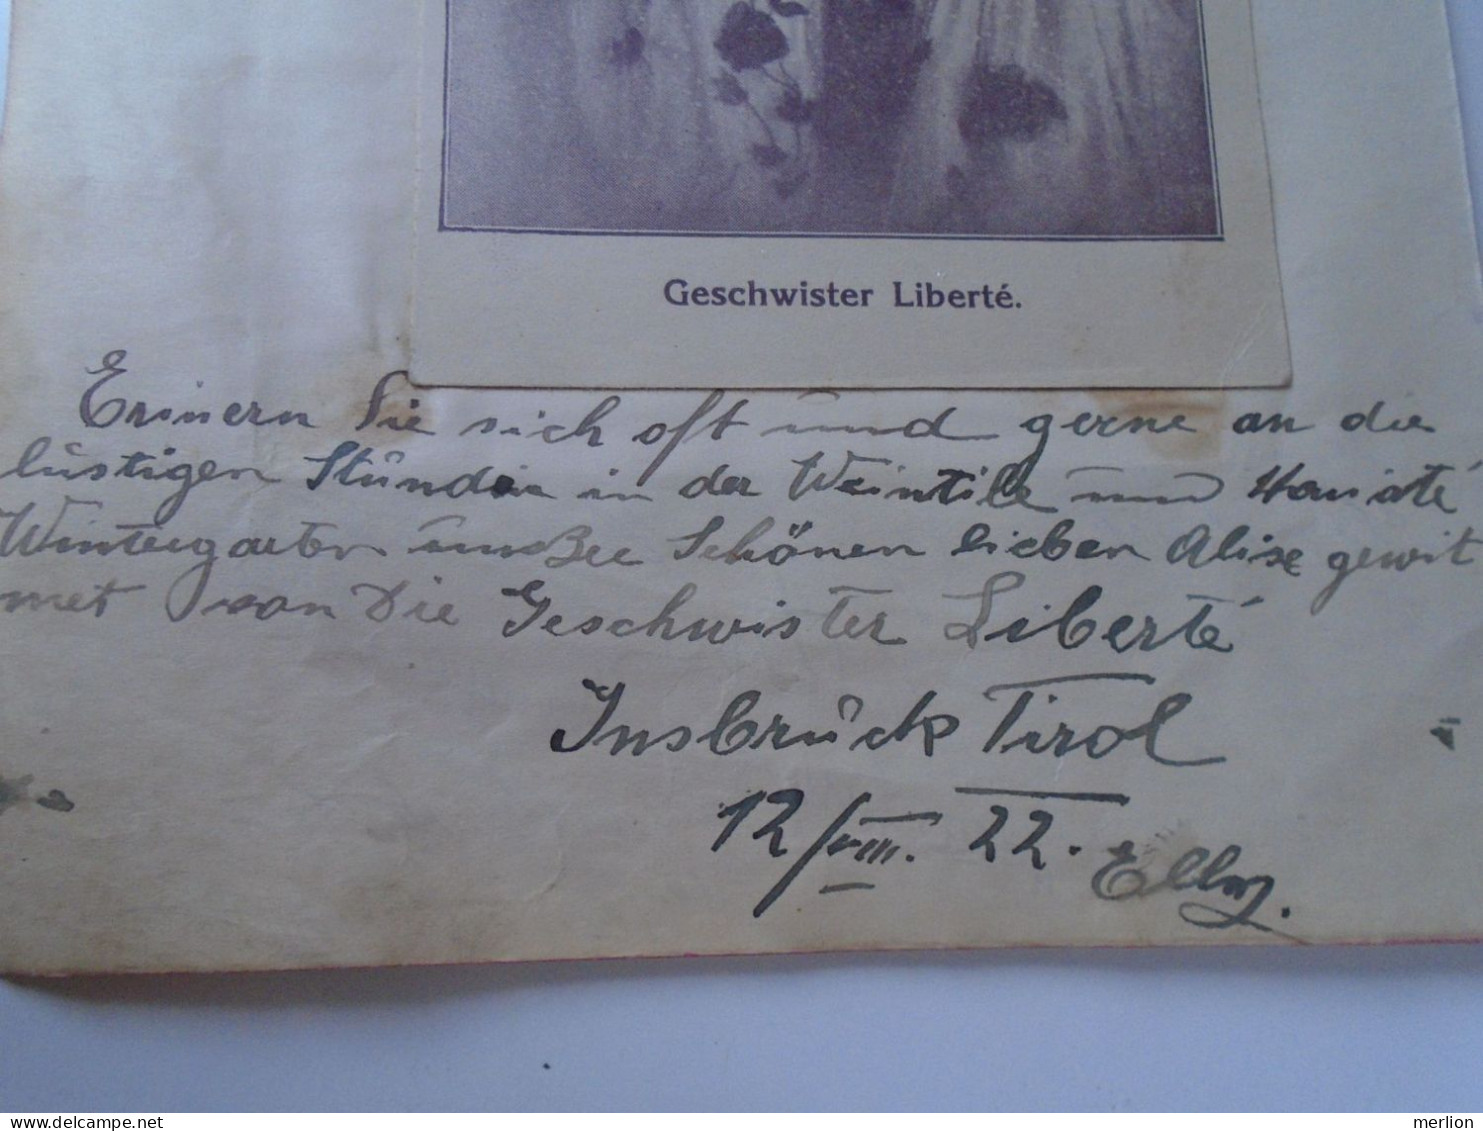 Geschwister Liberté.
Erinern Sie sich oft und gerne an die
lustigen Stunden in der Weintile und
Wintergarten unsser Schönen lieben Alise gewit
met von Die Geschwister Liberté
Insbruck Tirol
12/VIII. 22.
Elly.
merlion
www.delcampe.net